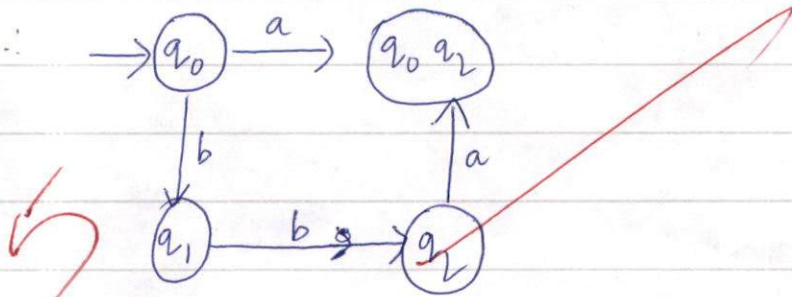 ∴
q₀ a q₀ q₂
b a
q₁ b q₂